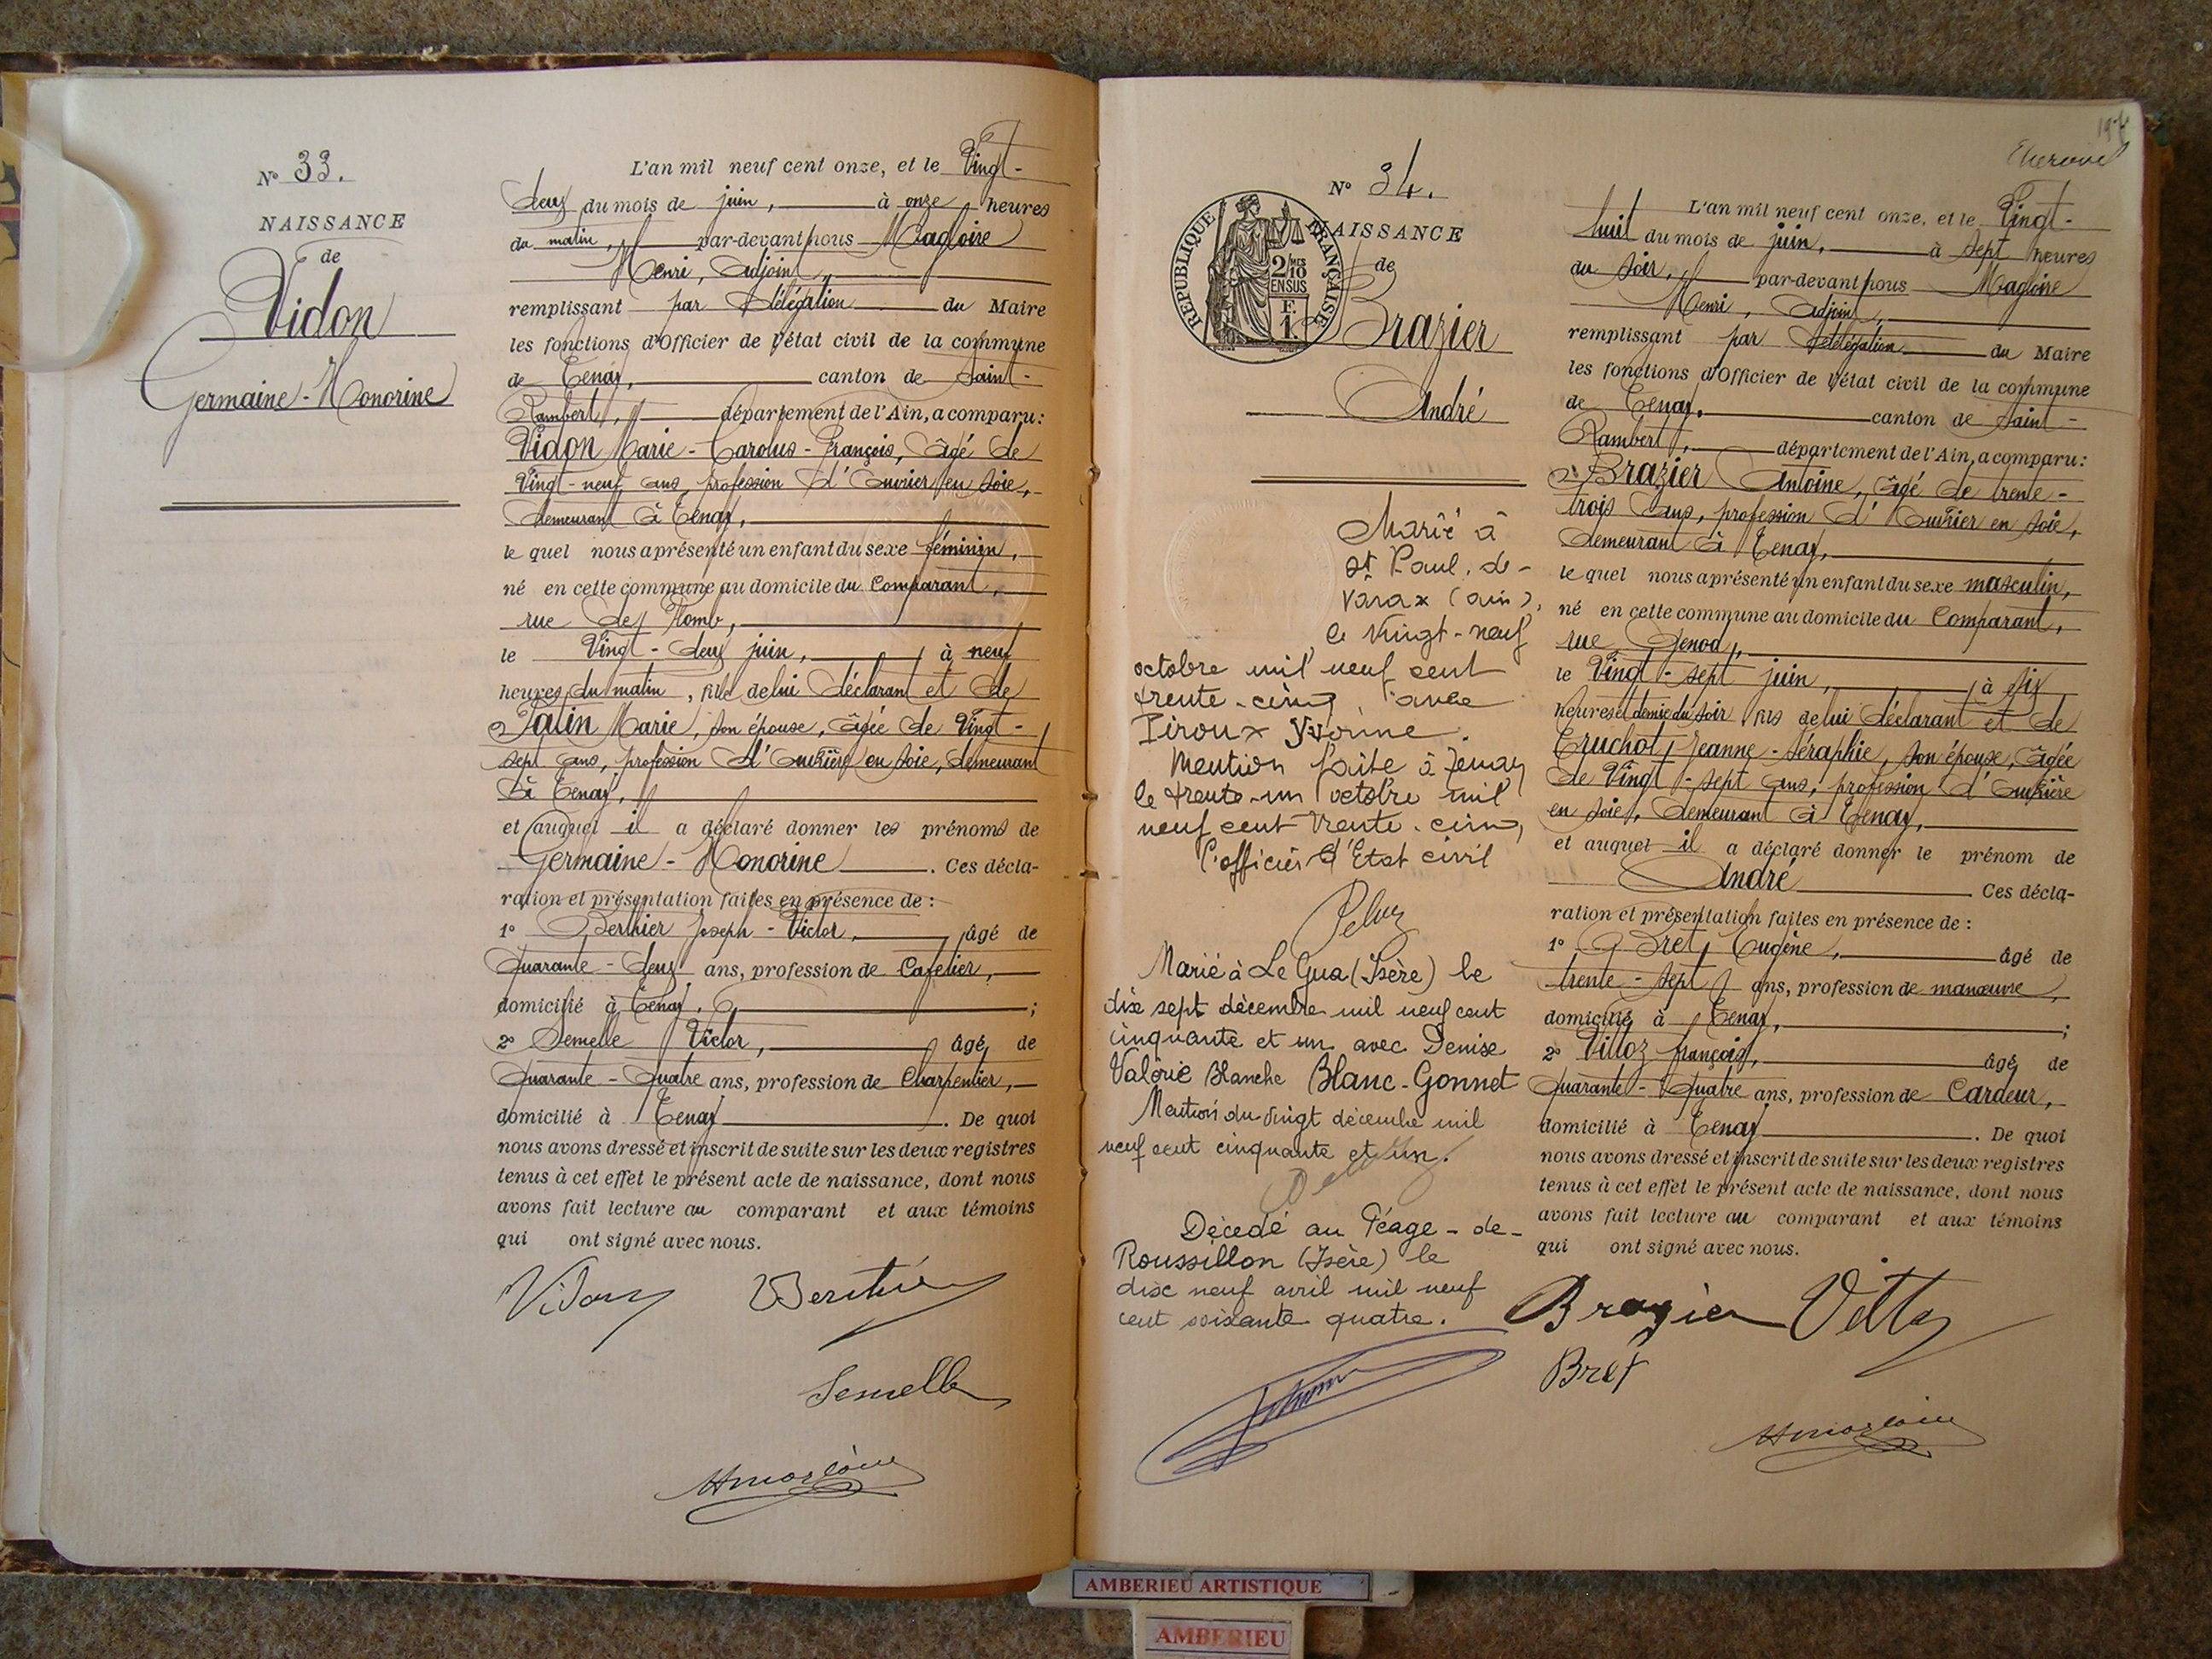 N° 33.
NAISSANCE
de
Vidon
Germaine-Honorine
L'an mil neuf cent onze, et le Vingt-
deux du mois de juin, à onze heures
du matin, par-devant nous Magloire
Henri, adjoint,
remplissant par délégation du Maire
les fonctions d'Officier de l'état civil de la commune
de Tenay, canton de Saint-
Rambert, département de l'Ain, a comparu:
Vidon Marie-Carolus-François, âgé de
Vingt-neuf ans, profession d'Ouvrier en soie,
demeurant à Tenay,
le quel nous a présenté un enfant du sexe féminin,
né en cette commune au domicile du Comparant,
rue de Plomb,
le Vingt-deux juin, à neuf
heures du matin, fille de lui déclarant et de
Marie, son épouse, âgée de Vingt-
sept ans, profession d'Ouvrière en soie, demeurant
à Tenay,
et auquel il a déclaré donner les prénoms de
Germaine-Honorine. Ces décla-
ration et présentation faites en présence de:
1° Berthier Joseph-Victor, âgé de
Quarante-deux ans, profession de Cafetier,
domicilié à Tenay, ;
2° Semelle Victor, âgé de
Quarante-Quatre ans, profession de Charpentier,
domicilié à Tenay. De quoi
nous avons dressé et inscrit de suite sur les deux registres
tenus à cet effet le présent acte de naissance, dont nous
avons fait lecture au comparant et aux témoins
qui ont signé avec nous.
Vidon Berthier
Semelle
HMagloire
N° 34.
REPUBLIQUE FRANÇAISE
2/10 MES
EN SUS
1 F.
NAISSANCE
de
Brazier
André
Marié à
St Paul-de-
Varax (ain),
le vingt-neuf
octobre mil neuf cent
trente-cinq, avec
Piroux Yvonne.
Mention faite à Tenay
le trente-un octobre mil
neuf cent trente-cinq,
l'officier d'Etat civil
Marié à Le Gua (Isère) le
dix sept décembre mil neuf cent
cinquante et un avec Denise
Valérie Blanche Blanc-Gonnet
Mention du vingt décembre mil
neuf cent cinquante et un.
Décédé au Péage-de-
Roussillon (Isère) le
dix neuf avril mil neuf
cent soixante quatre.
L'an mil neuf cent onze, et le Vingt-
huit du mois de juin, à sept heures
du soir, par-devant nous Magloire
Henri, adjoint,
remplissant par délégation du Maire
les fonctions d'Officier de l'état civil de la commune
de Tenay, canton de Saint-
Rambert, département de l'Ain, a comparu:
Brazier Antoine, âgé de trente-
trois ans, profession d'Ouvrier en soie,
demeurant à Tenay,
le quel nous a présenté un enfant du sexe masculin,
né en cette commune au domicile du Comparant,
rue Genod,
le Vingt-sept juin, à six
heures et demie du soir fils de lui déclarant et de
Truchot Jeanne-Séraphie, son épouse, âgée
de Vingt-sept ans, profession d'Ouvrière
en soie, demeurant à Tenay,
et auquel il a déclaré donner le prénom de
André Ces décla-
ration et présentation faites en présence de:
1° Bret Eugène, âgé de
trente-sept ans, profession de manœuvre,
domicilié à Tenay, ;
2° Villoz françois, âgé de
Quarante-Quatre ans, profession de Cardeur,
domicilié à Tenay. De quoi
nous avons dressé et inscrit de suite sur les deux registres
tenus à cet effet le présent acte de naissance, dont nous
avons fait lecture au comparant et aux témoins
qui ont signé avec nous.
Brazier
Bret
HMagloire
AMBERIEU ARTISTIQUE
AMBERIEU